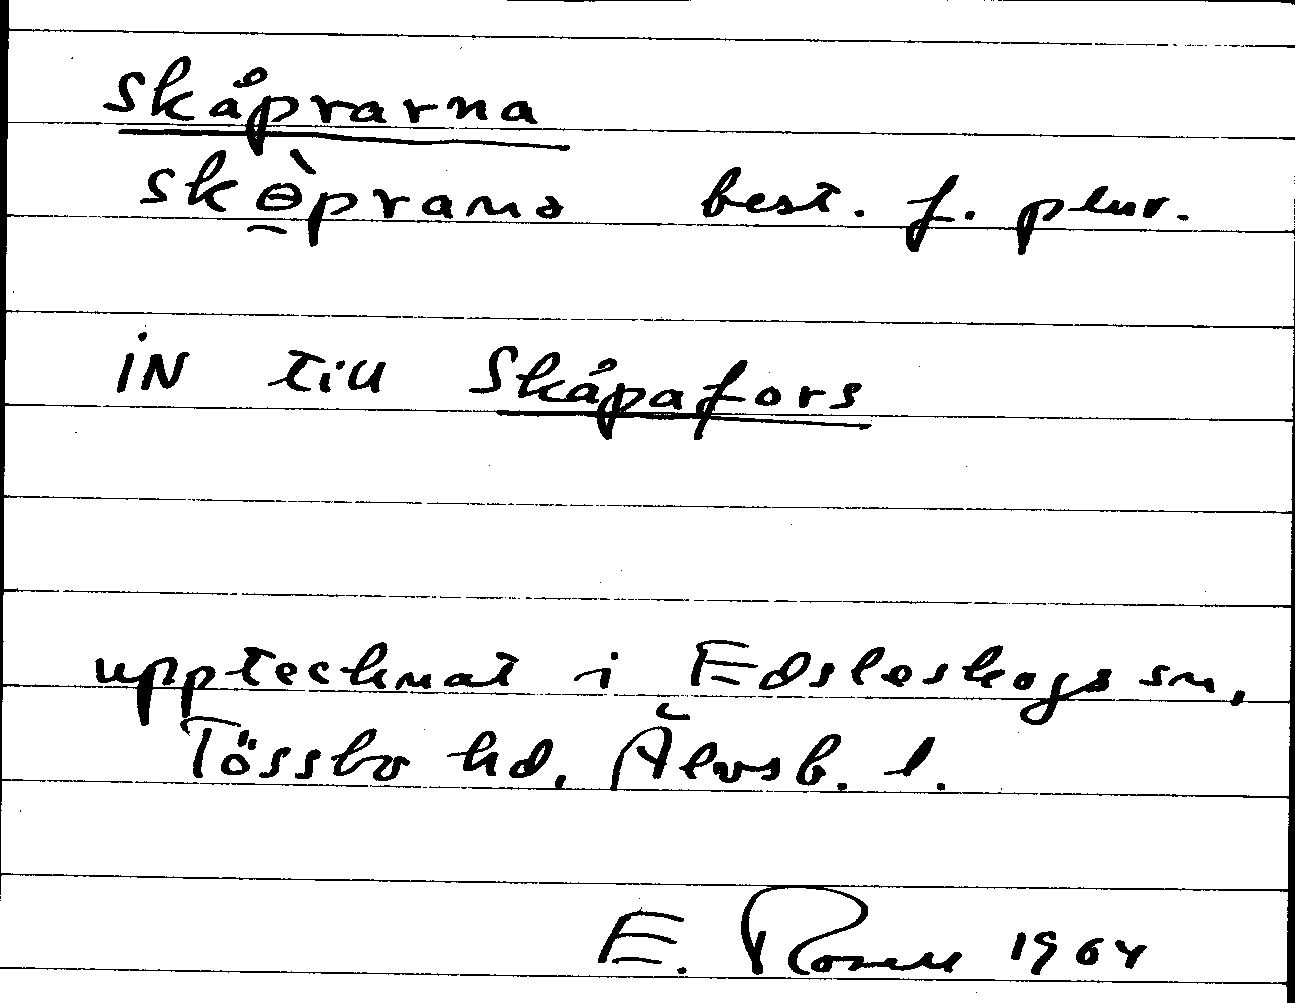 Skåprarna
skɵ̱̀pranɘ best. f. plur.
iN till Skåpafors
upptecknat i Edsleskogs sn,
Tössbo hd, Älvsb. l.
E. Rosell 1964